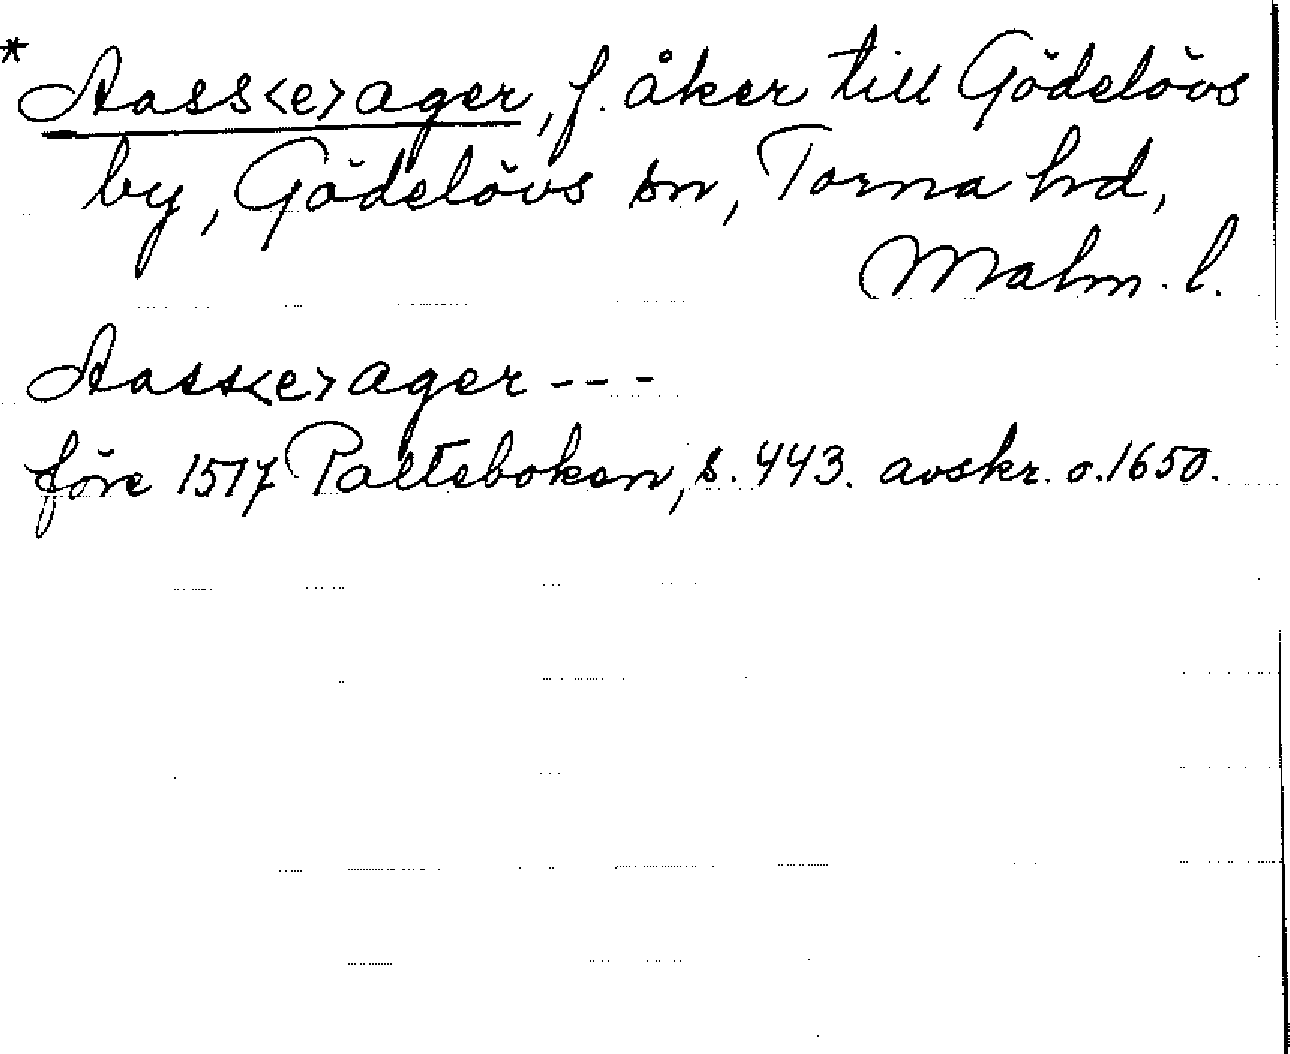 * Aass<e>ager, f. åker till Gödelövs
by, Gödelövs sn, Torna hd,
Malm. l.
Aass<e>ager ---
före 1517 Palteboken, s. 443. avskr. o. 1650.